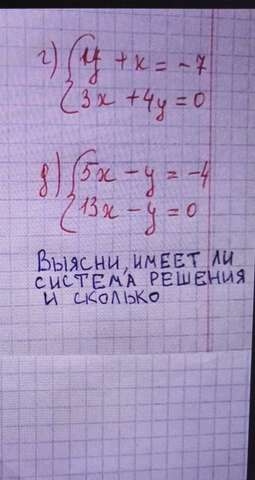 г) { y + x = -7
3x + 4y = 0
д) { 5x - y = -4
13x - y = 0
ВЫЯСНИ, ИМЕЕТ ЛИ
СИСТЕМА РЕШЕНИЯ
И СКОЛЬКО